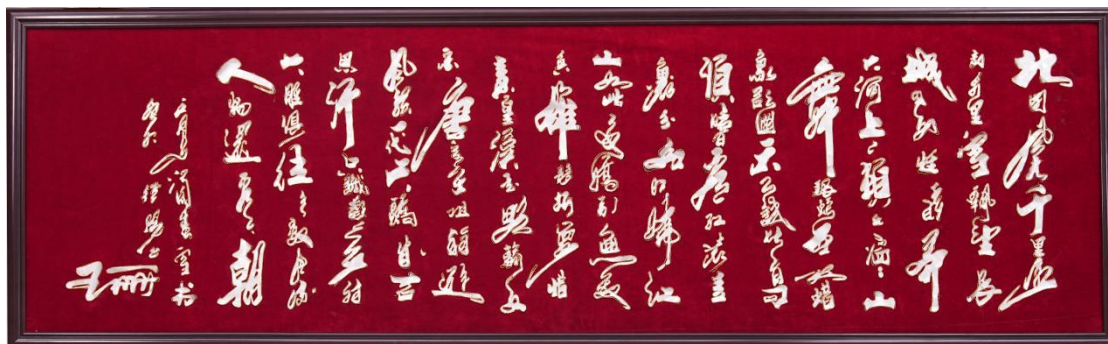 北国风光千里冰
封万里雪飘望长
城内外惟余莽
大河上下顿失滔滔山
舞银蛇原驰蜡
象欲与天公试比高
须晴日看红装素
裹分外妖娆江
山如此多娇引无数英
雄竞折腰惜
秦皇汉武略输文
采唐宗宋祖稍逊
风骚一代天骄成吉
思汗只识弯弓射
大雕俱往矣数风流
人物还看今朝
雪书